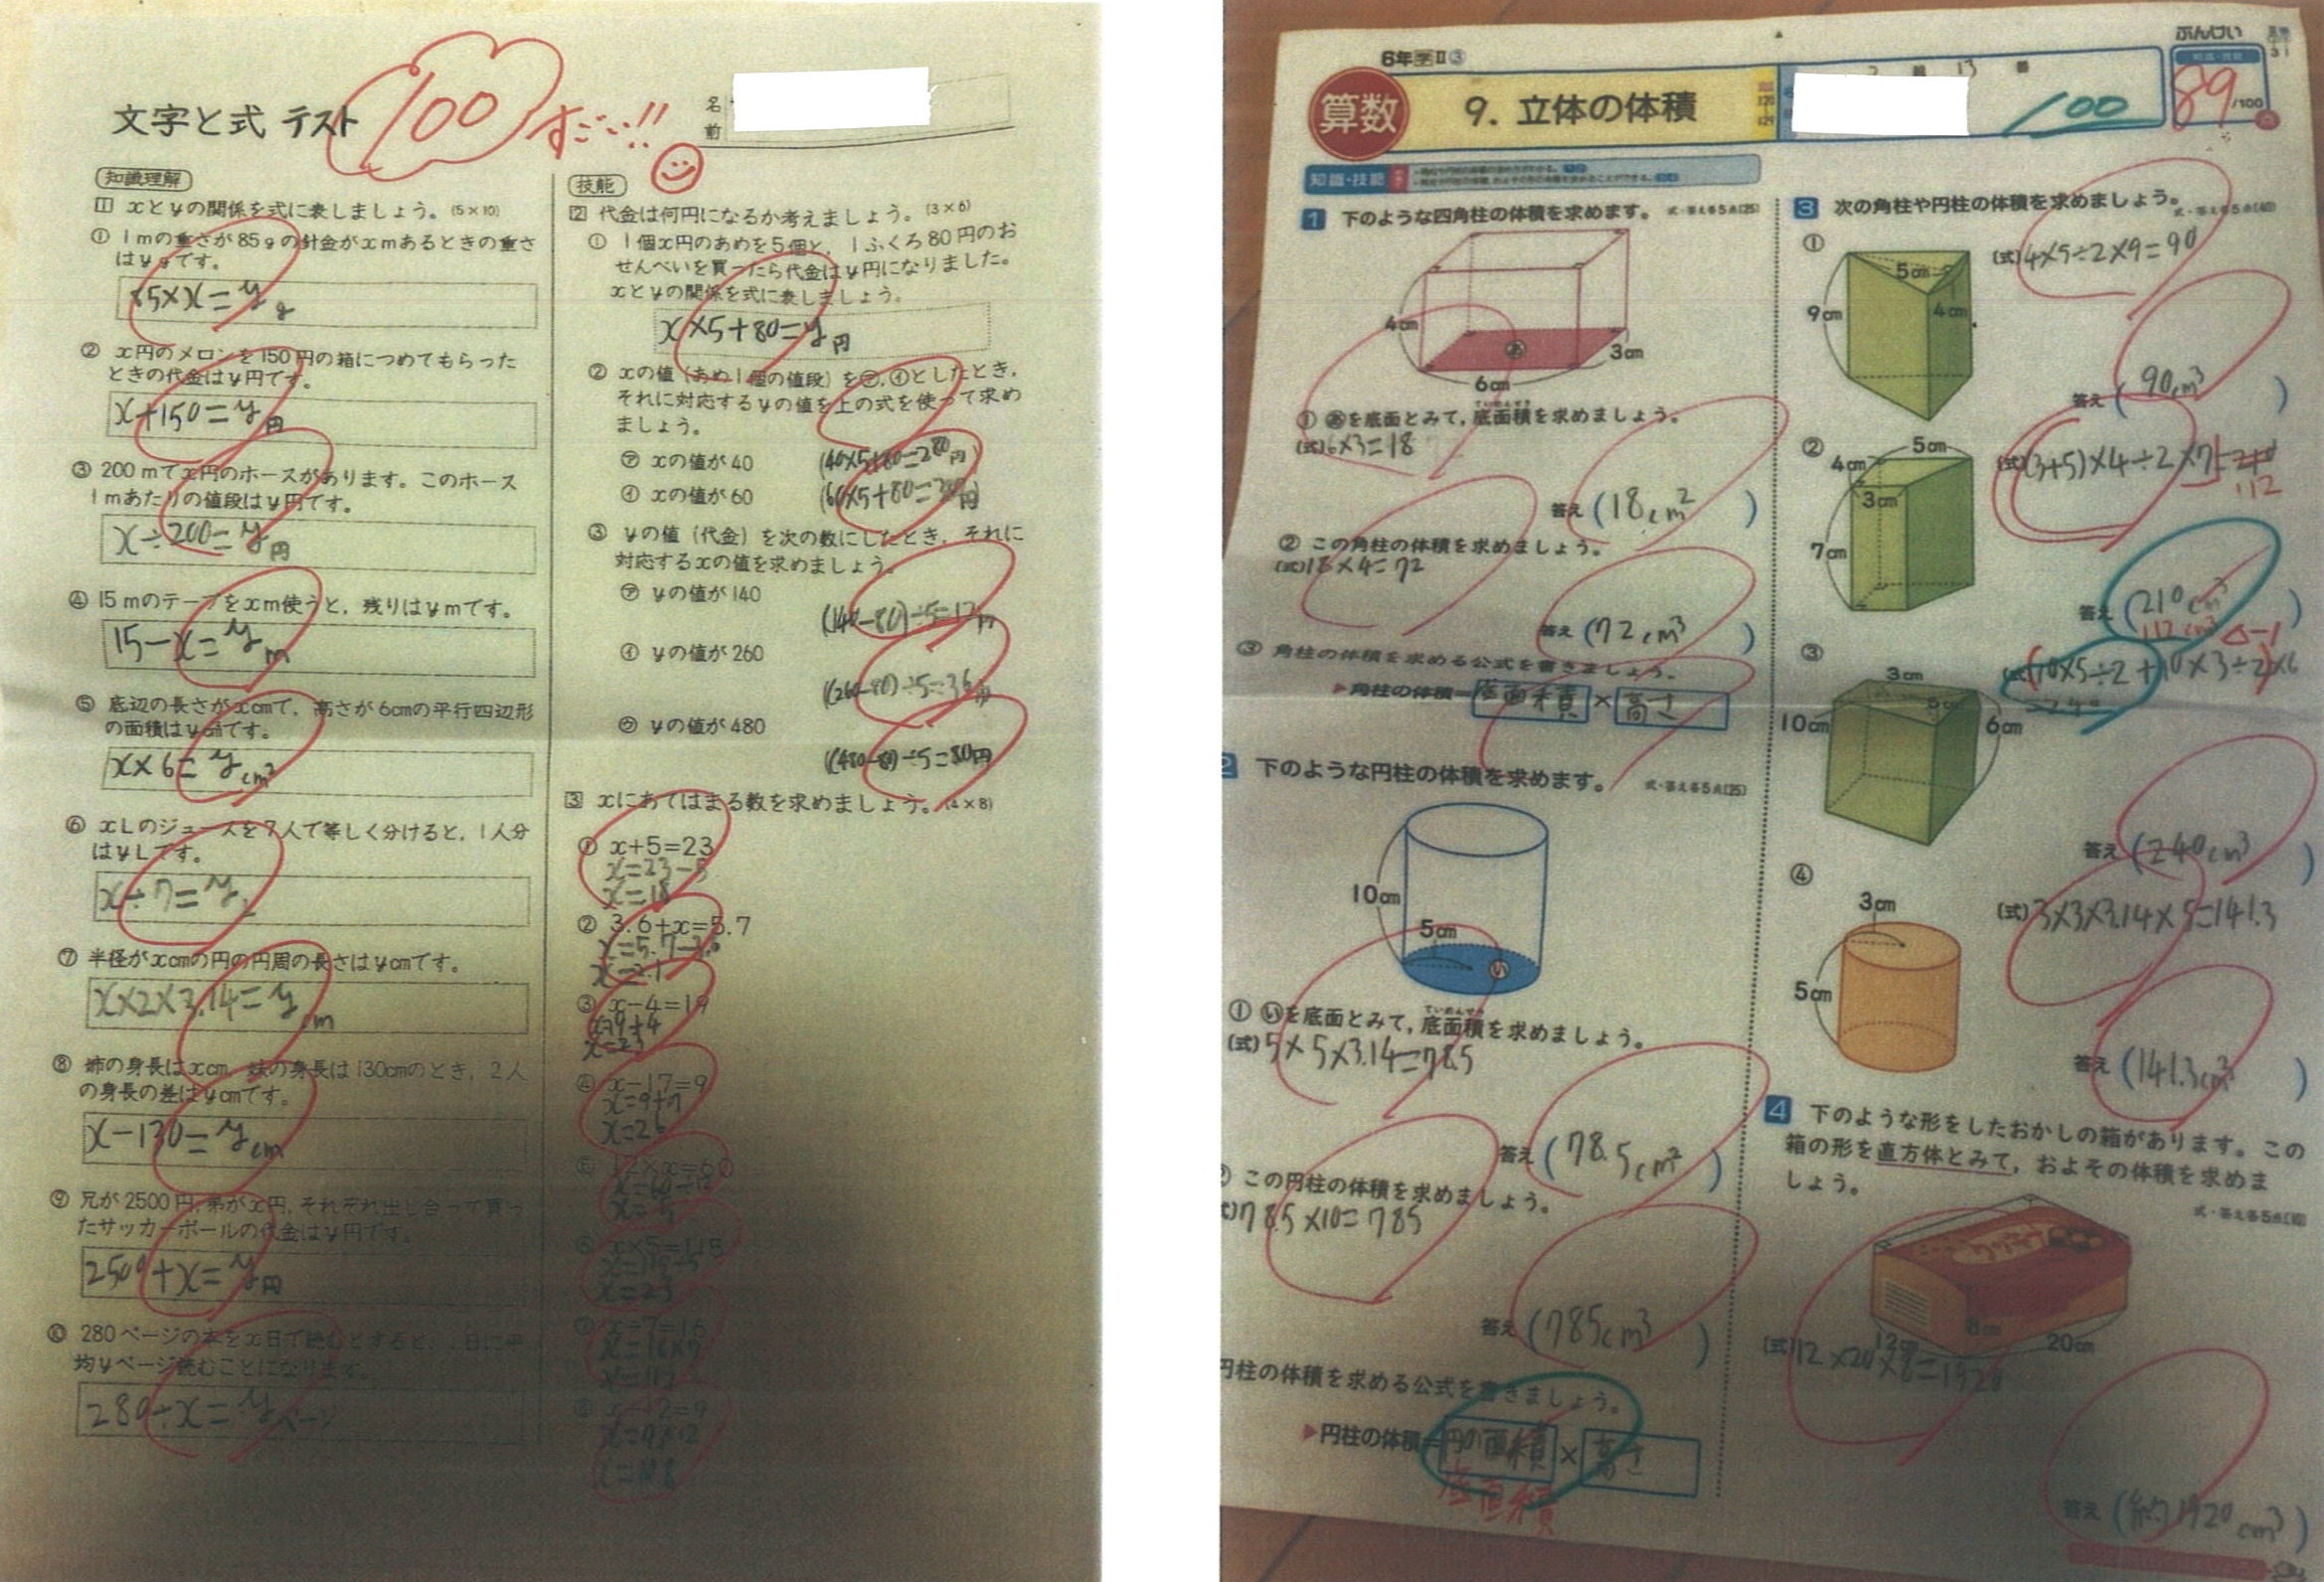 文字と式 テスト
100 すごい!!
名前
知識理解
1 xとyの関係を式に表しましょう。(5×10)
① 1mの重さが85gの針金がxmあるときの重さ
はygです。
85×x=y g
② x円のメロンを150円の箱につめてもらった
ときの代金はy円です。
x+150=y円
③ 200mでx円のホースがあります。このホース
1mあたりの値段はy円です。
x÷200=y円
④ 15mのテープをxm使うと,残りはymです。
15-x=y m
⑤ 底辺の長さがxcmで,高さが6cmの平行四辺形
の面積はycm²です。
x×6=y cm²
⑥ xLのジュースを7人で等しく分けると,1人分
はyLです。
x÷7=y
⑦ 半径がxcmの円の円周の長さはycmです。
x×2×3.14=y cm
⑧ 姉の身長はxcm,妹の身長は130cmのとき,2人
の身長の差はycmです。
x-130=y cm
⑨ 兄が2500円,弟がx円,それぞれ出し合って買っ
たサッカーボールの代金はy円です。
2500+x=y円
⑩ 280ページの本をx日で読むとすると,1日に平
均yページ読むことになります。
280÷x=yページ
技能
2 代金は何円になるか考えましょう。(3×6)
① 1個x円のあめを5個と,1ふくろ80円のお
せんべいを買ったら代金はy円になりました。
xとyの関係を式に表しましょう。
x×5+80=y円
② xの値(あめ1個の値段)を㋐,㋑としたとき,
それに対応するyの値を上の式を使って求め
ましょう。
㋐ xの値が40 (40×5+80=280円)
㋑ xの値が60 (60×5+80= 円)
③ yの値(代金)を次の数にしたとき,それに
対応するxの値を求めましょう。
㋐ yの値が140
(140-80)÷5=12円
㋑ yの値が260
(260-80)÷5=36円
㋒ yの値が480
(480-80)÷5=80円
3 xにあてはまる数を求めましょう。(4×8)
① x+5=23
x=23-5
x=18
② 3.6+x=5.7
x=5.7-3.6
x=2.1
③ x-4=19
x=19+4
x=23
④ x-17=9
x=9+17
x=26
⑤ 12×x=60
x=60÷12
x=5
⑥ x×5=115
x=115÷5
x=23
⑦ x÷7=16
x=16×7
x=112
⑧ x÷12=9
x=9×12
x=108
6年 Ⅱ③
ぶんけい
算数 9. 立体の体積
100
知識・技能
89/100
知識・技能
1 下のような四角柱の体積を求めます。 式・答え各5点(25)
4cm
あ
3cm
6cm
① あを底面とみて,底面積を求めましょう。
ていめんせき
(式)6×3=18
答え(18cm²)
② この角柱の体積を求めましょう。
(式)18×4=72
答え(72cm³)
③ 角柱の体積を求める公式を書きましょう。
▶角柱の体積=底面積×高さ
2 下のような円柱の体積を求めます。 式・答え各5点(25)
10cm
5cm
い
① いを底面とみて,底面積を求めましょう。
ていめんせき
(式)5×5×3.14=78.5
答え(78.5cm²)
この円柱の体積を求めましょう。
78.5×10=785
答え(785cm³)
円柱の体積を求める公式を書きましょう。
▶円柱の体積=円の面積×高さ
底面積
3 次の角柱や円柱の体積を求めましょう。 式・答え各5点(40)
①
5cm
9cm
4cm
(式)4×5÷2×9=90
答え(90cm³)
②
5cm
4cm
3cm
7cm
(式)(3+5)×4÷2×7=210
112
答え(210cm³)
112cm³ △-1
③
3cm
5cm
10cm
6cm
(式)(10×5÷2+10×3÷2)×6
=240
答え(240cm³)
④
3cm
5cm
(式)3×3×3.14×5=141.3
答え(141.3cm³)
4 下のような形をしたおかしの箱があります。この
箱の形を直方体とみて,およその体積を求めま
しょう。
式・答え各5点(10)
8cm
12cm
20cm
(式)12×20×8=1920
答え(約1920cm³)